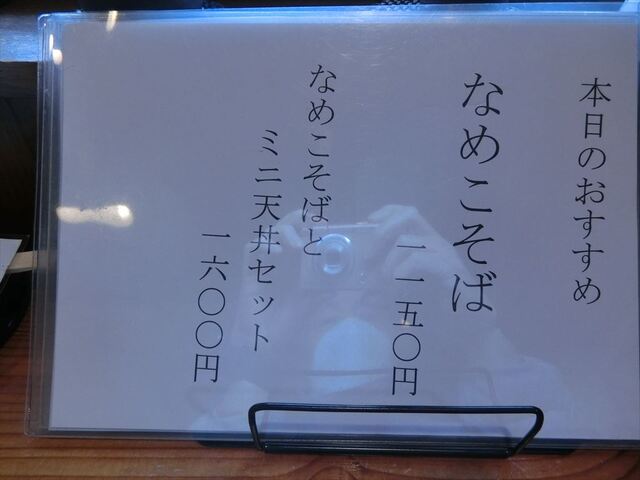 本日のおすすめ
なめこそば
一一五〇円
なめこそばと
ミニ天丼セット
一六〇〇円